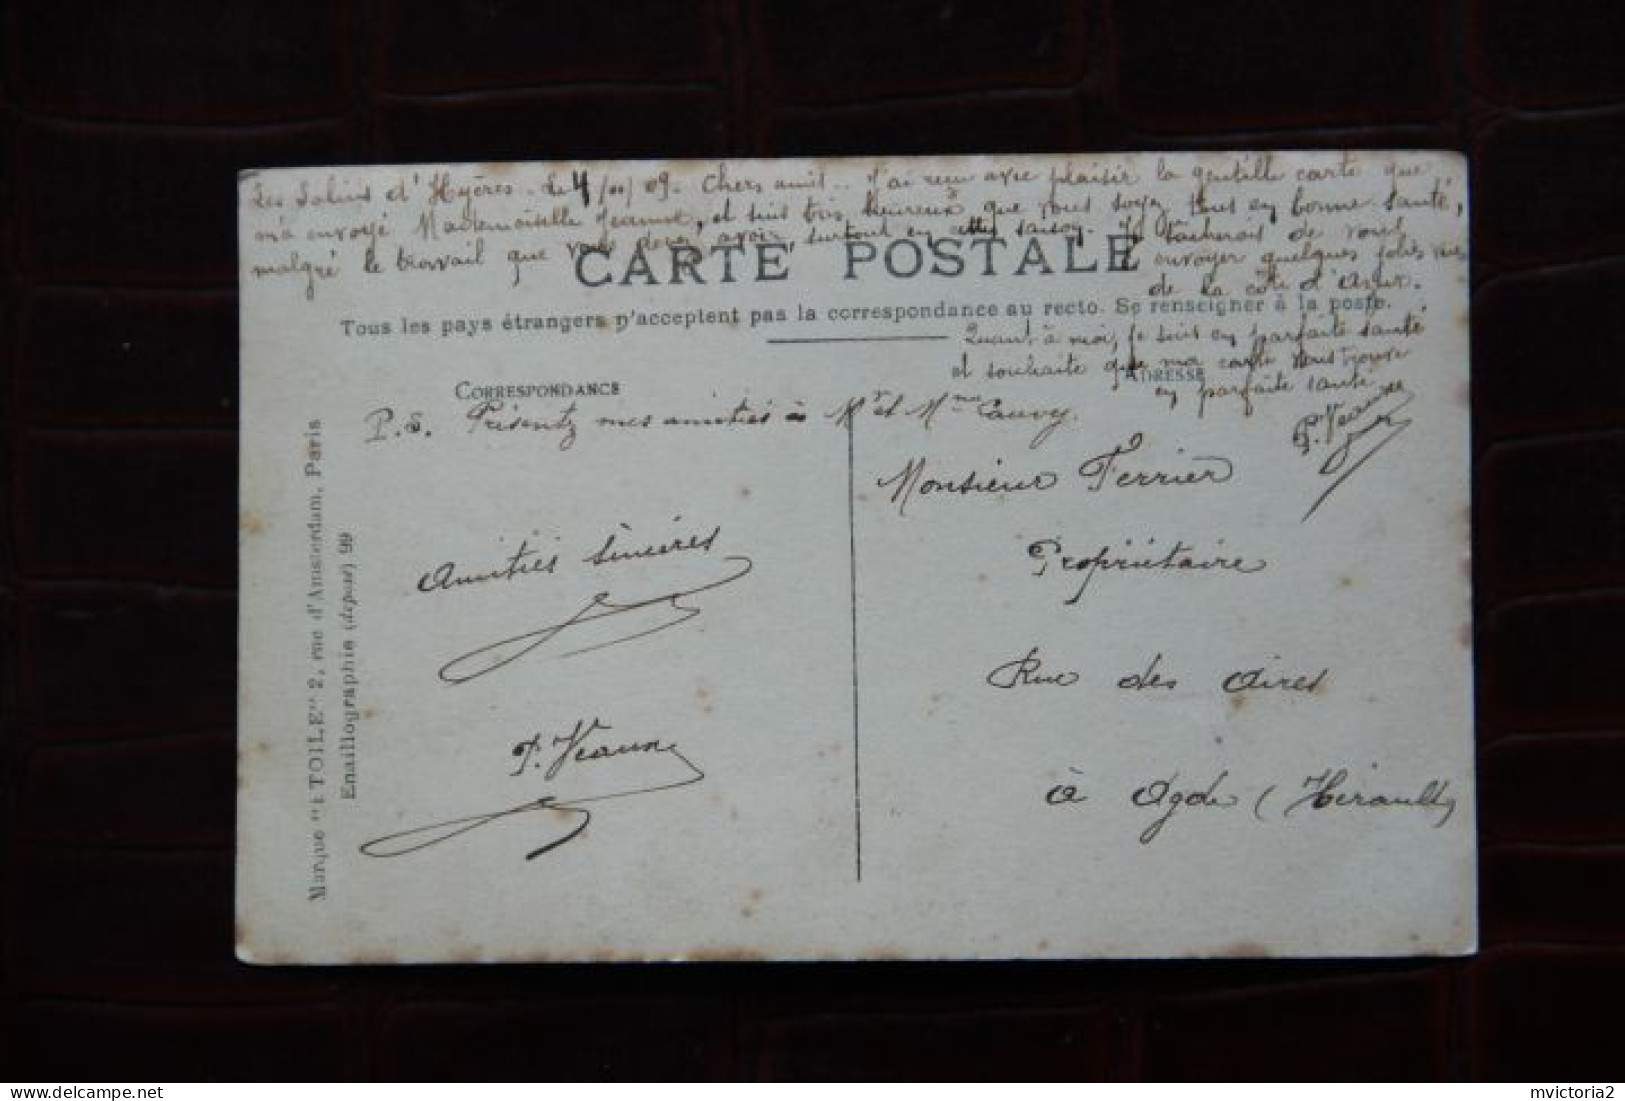 Les Salins d'Hyères. Le 4/10/09. Chers amis.. J'ai reçu avec plaisir la gentille carte que
m'a envoyé Mademoiselle Jeanne, et suis très heureux que vous soyez tous en bonne santé,
malgré le travail que vous devez avoir, surtout en cette saison. Je tâcherais de vous
envoyer quelques jolies vues
de la côte d'Azur.
CARTE POSTALE
Tous les pays étrangers n'acceptent pas la correspondance au recto. Se renseigner à la poste.
Quant à moi, je suis en parfaite santé
et souhaite que ma carte vous trouve
en parfaite santé
P. Veaune
CORRESPONDANCE
ADRESSE
P.S. Présentez mes amitiés à Mr et Mme Cauvy.
Amitiés sincères
P. Veaune
Monsieur Ferrier
Propriétaire
Rue des Aires
à Agde (Hérault)
Marque "ETOILE" 2, rue d'Amsterdam, Paris
Emaillographie (déposé) 99
mvictoria2